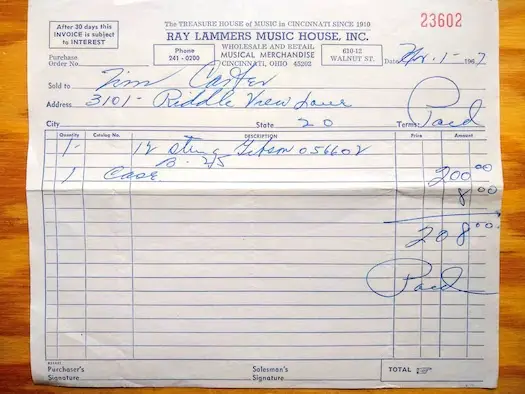 After 30 days this
INVOICE is subject
to INTEREST
The TREASURE HOUSE of MUSIC in CINCINNATI SINCE 1910
23602
RAY LAMMERS MUSIC HOUSE, INC.
Phone
241 - 0200
WHOLESALE AND RETAIL
MUSICAL MERCHANDISE
CINCINNATI, OHIO 45202
610-12
WALNUT ST.
Purchase
Order No.
Date Apr. 1 - 1967
Sold to Tim Carter
Address 3101 - Riddle View Lane
City State 20 Terms: Paid
Quantity Catalog No. DESCRIPTION Price Amount
1 - 12 String Gibson 056602
B. 25
1 Case 200 00
8 00
208 00
Paid
Purchaser's
Signature
Salesman's
Signature
TOTAL